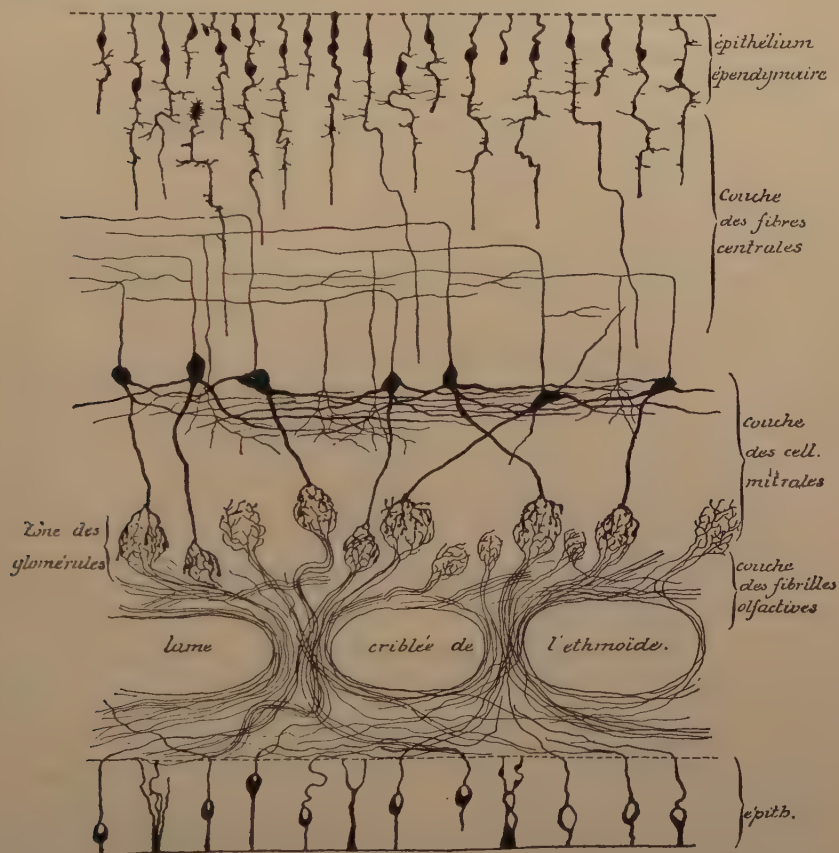 épithélium
épendymaire
Couche
des fibres
centrales
couche
des cell.
mitrales
Zône des
glomérules
couche
des fibrilles
olfactives
lame criblée de l'ethmoïde.
épith.